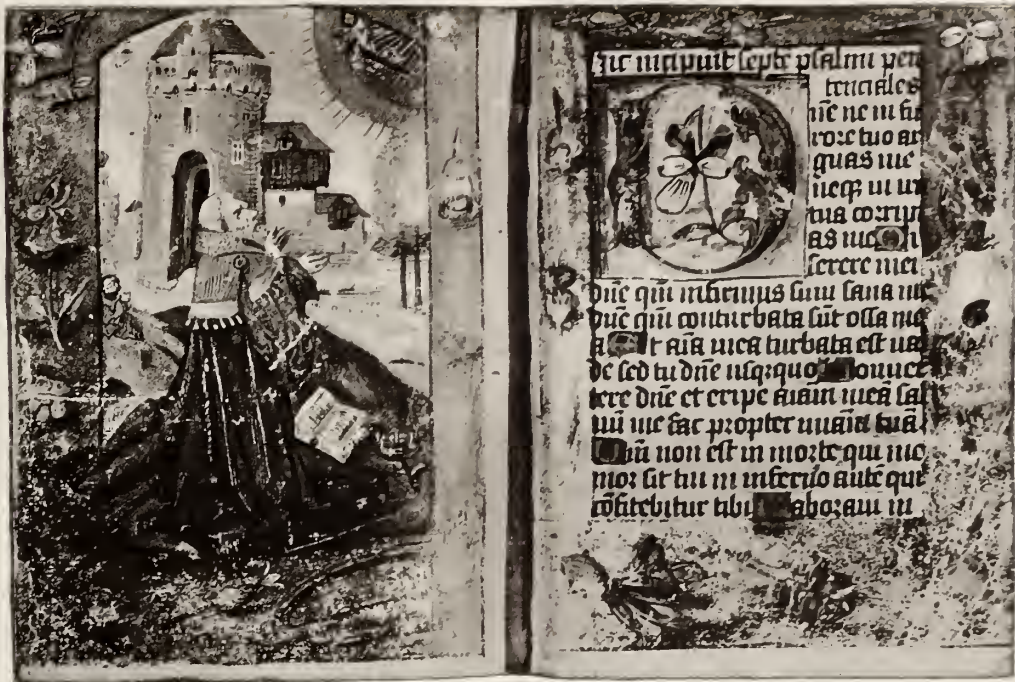 Hic incipiūt septē psalmi peni
tenciales
nē ne in fu
rore tuo ar
guas me
neqȝ in ira
tua corripi
as me
serere mei
dn̄e qm̄ infirmus sum sana me
dn̄e qm̄ conturbata sūt ossa mea
t aīa mea turbata est ual
de sed tu dn̄e usqȝquo onuer
tere dn̄e et eripe aīam meā sal
uū me fac propter mīam tuā
m̄ non est in morte qui me
mor sit tui in inferno autē quis
cōfitebitur tibi aboraui in